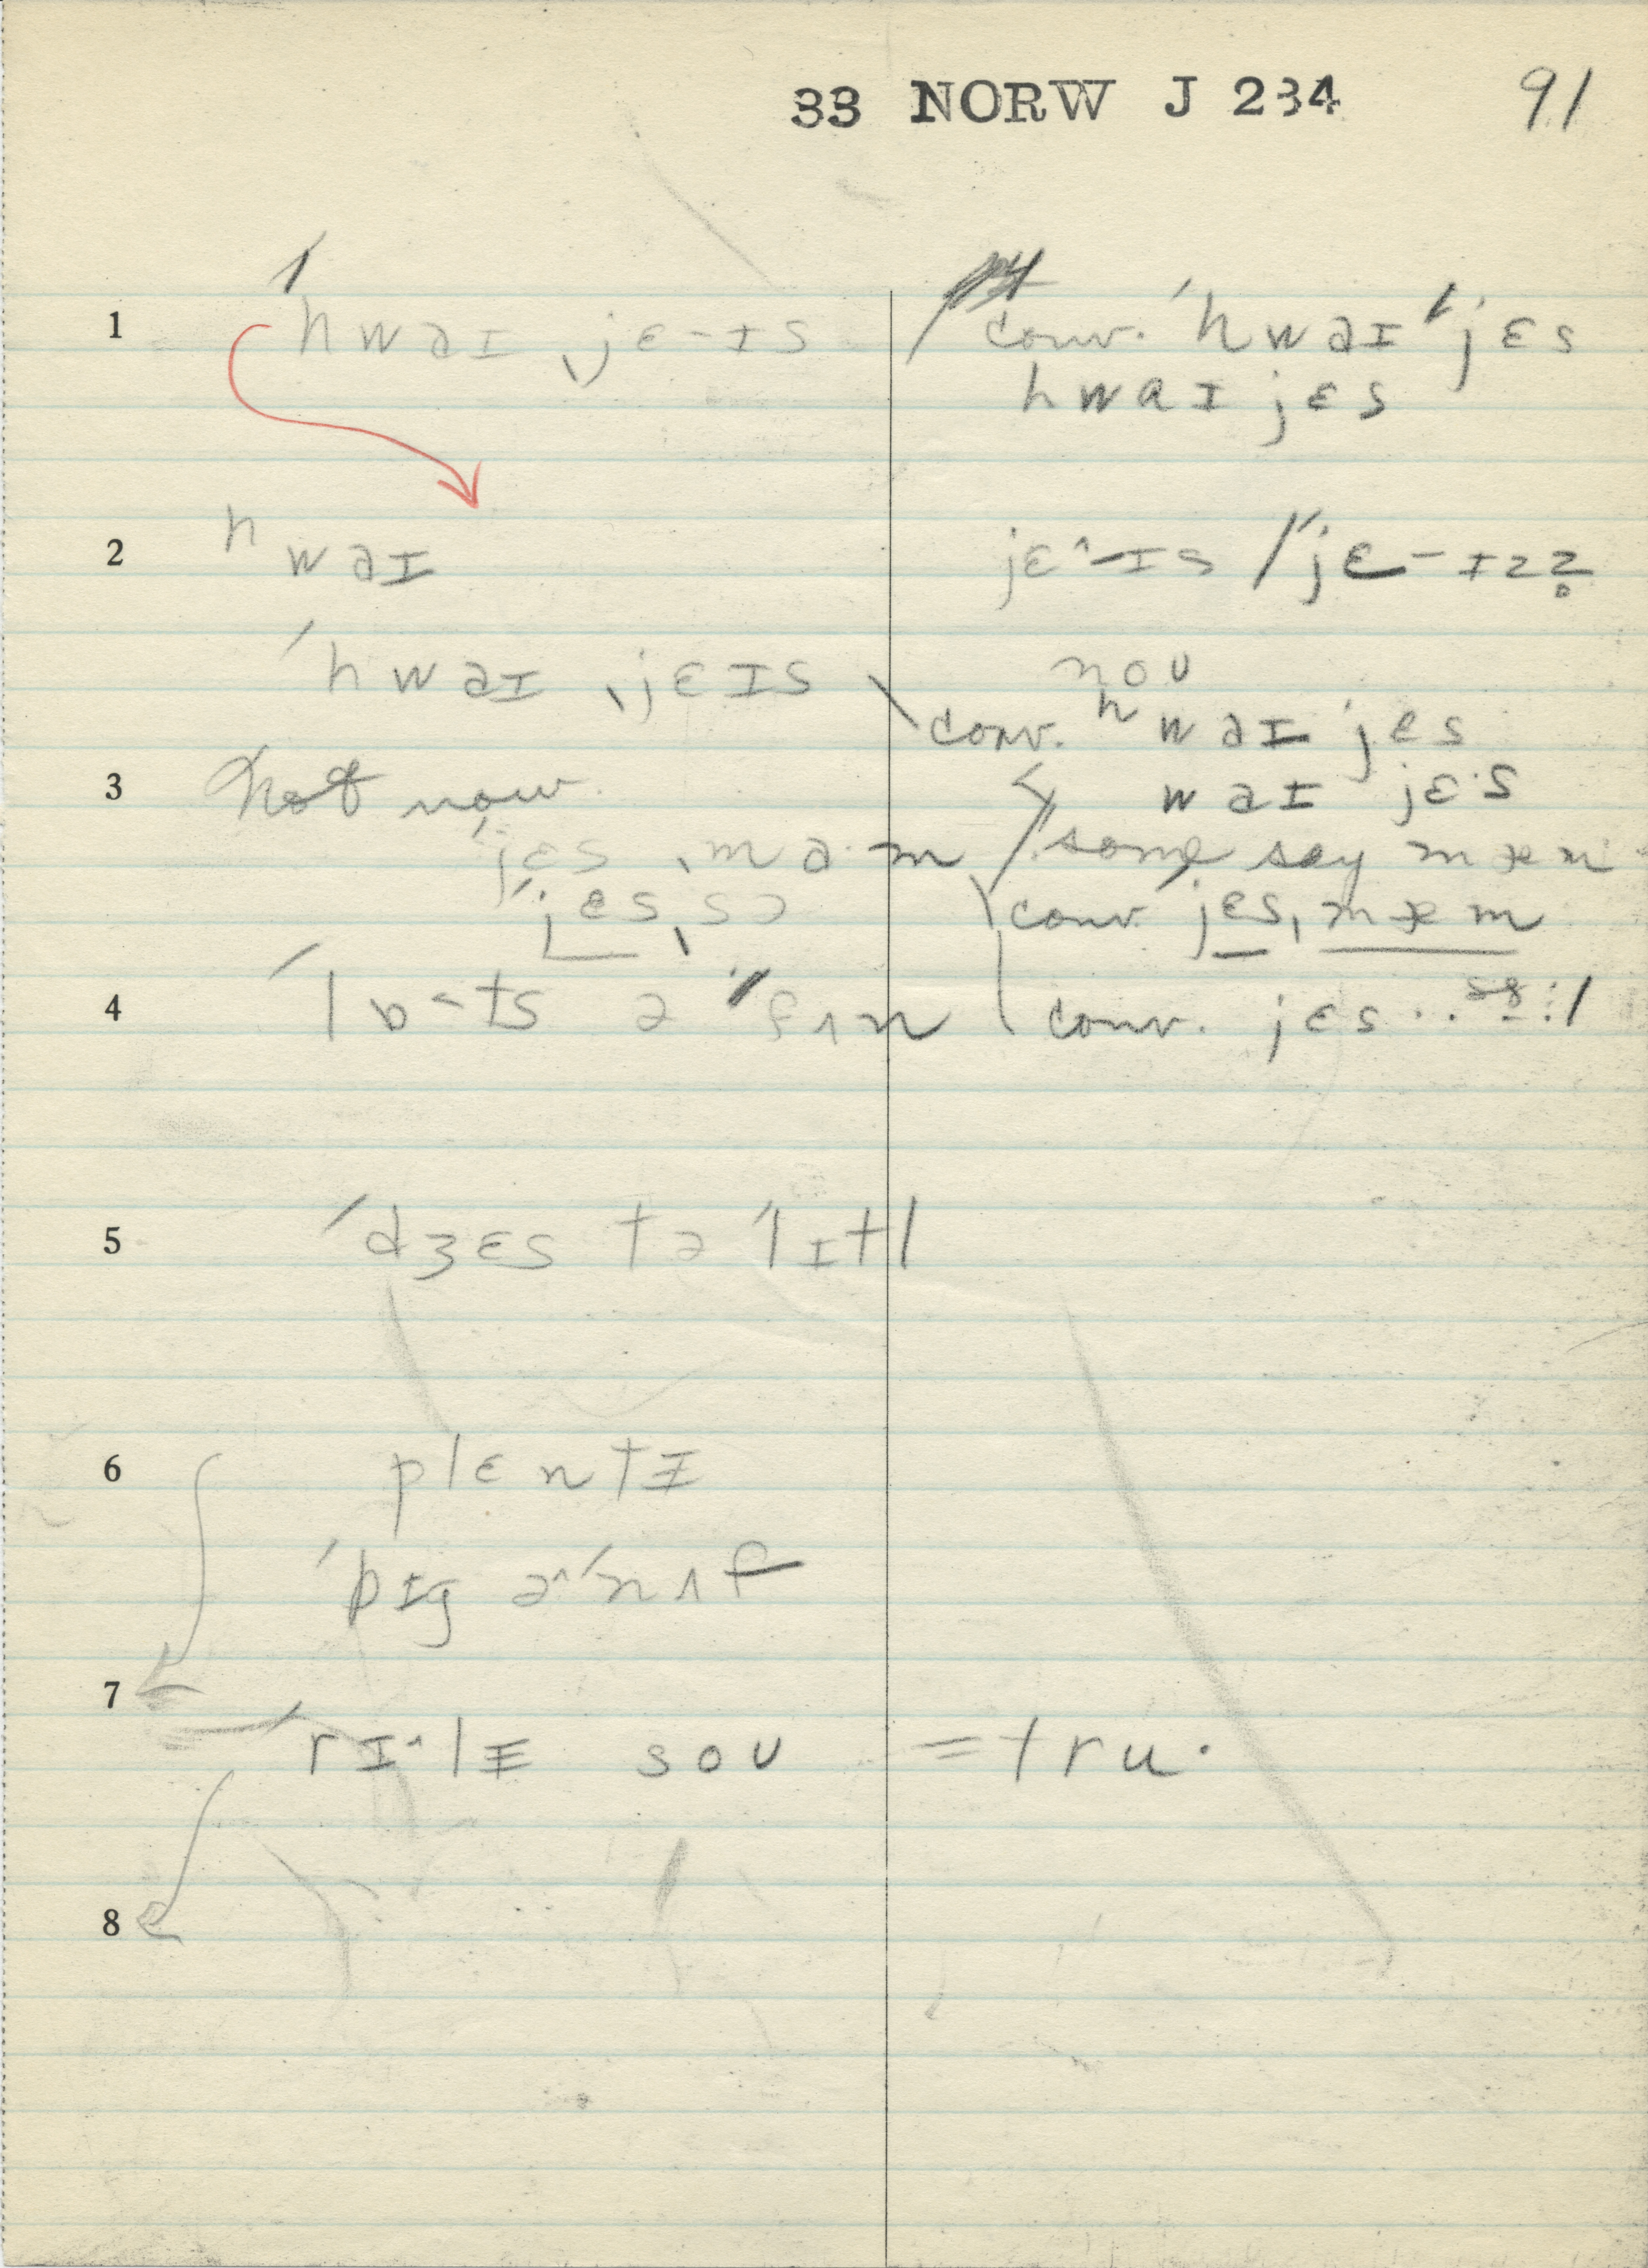 33 NORW J 234 91
1 ˈhwaɪ ˌjɛ-ɪs conv. ˈhwaɪ ˈjɛs
hwaɪ jɛs
2 ʰwaɪ jɛ^-ɪs / ˈjɛ-ɪzz̥
ˈhwaɪ ˌjɛɪs noʊ
conv. ʰwaɪ ˈjɛs
3 Not now. waɪ jɛ·s
ˈjɛs ˌma·m some say mæm
ˈjɛs ˌsɔ conv. jɛs, mæm
4 ˈlɒ-ts ə ˈfʌn conv. jɛs ..
5 ˈdʒɛs tə ˈlɪtl
6 plɛntɪ
ˈbɪg ə^ˈnʌf
7
ˈrɪ^lɪ soʊ = tru·
8